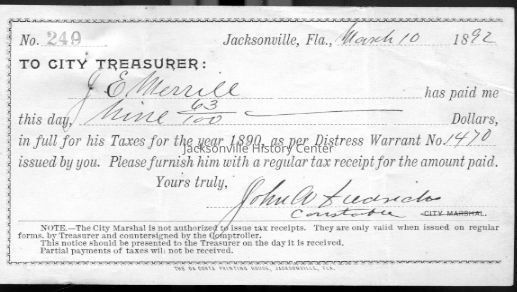 No. 249 Jacksonville, Fla., March 10 1892
TO CITY TREASURER:
J E Merrill has paid me
this day, Nine 63/100 Dollars,
in full for his Taxes for the year 1890, as per Distress Warrant No. 1470
Jacksonville History Center
issued by you. Please furnish him with a regular tax receipt for the amount paid.
Yours truly,
John W
Constable CITY MARSHAL.
NOTE.—The City Marshal is not authorized to issue tax receipts. They are only valid when issued on regular
forms, by Treasurer and countersigned by the Comptroller.
This notice should be presented to the Treasurer on the day it is received.
Partial payments of taxes will not be received.
THE DA COSTA PRINTING HOUSE, JACKSONVILLE, FLA.